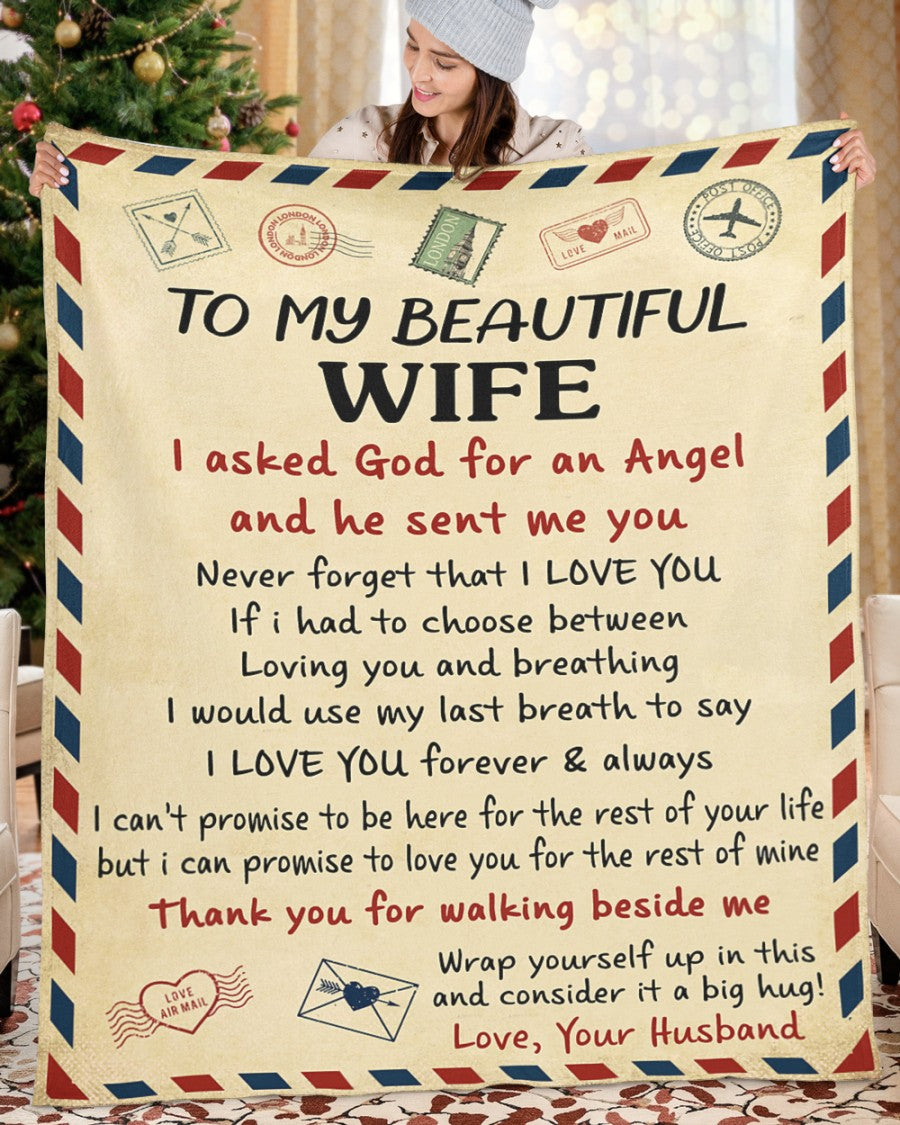 LONDON LONDON LONDON LONDON
LONDON
LOVE MAIL
POST OFFICE POST OFFICE
TO MY BEAUTIFUL
WIFE
I asked God for an Angel
and he sent me you
Never forget that I LOVE YOU
If i had to choose between
Loving you and breathing
I would use my last breath to say
I LOVE YOU forever & always
I can't promise to be here for the rest of your life
but i can promise to love you for the rest of mine
Thank you for walking beside me
Wrap yourself up in this
and consider it a big hug!
Love, Your Husband
LOVE
AIR MAIL